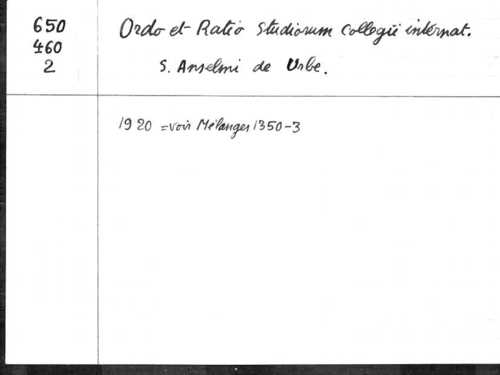 650
460
2
Ordo et Ratio Studiorum Collegii internat.
S. Anselmi de Urbe.
1920 = voir Mélanges 1350-3